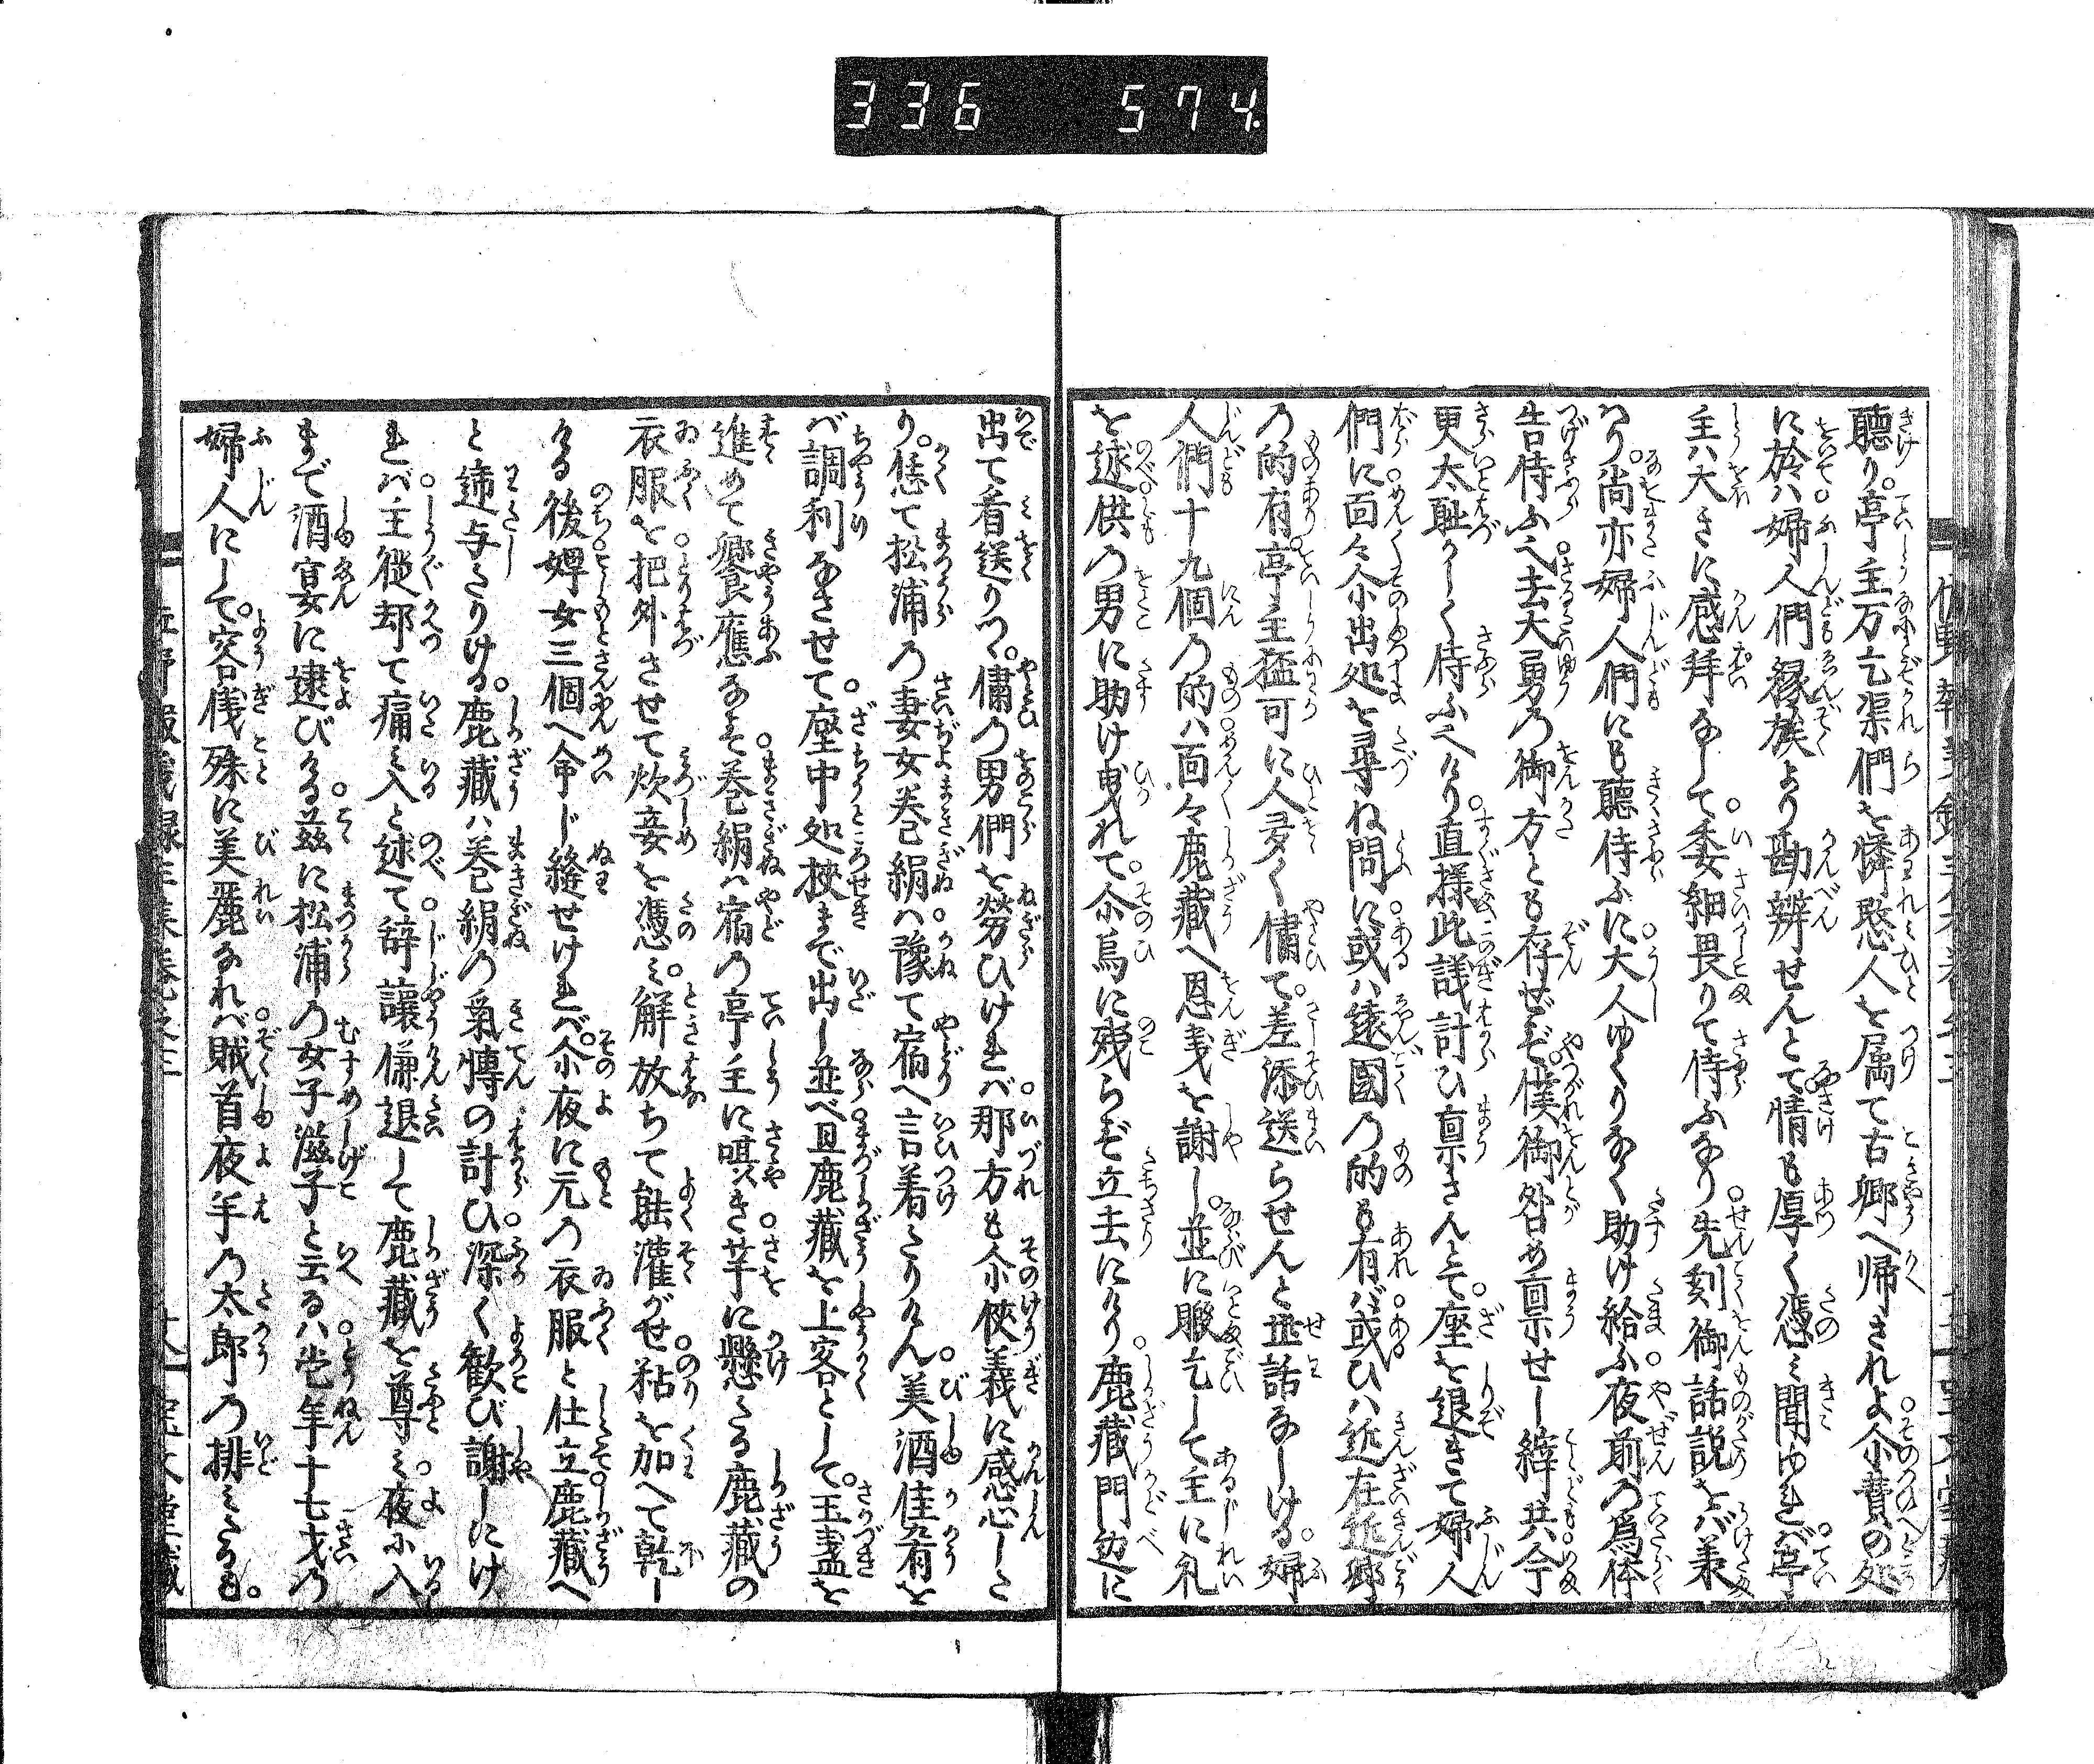 336 574
聴り。亭主万乞渠們を憐愍人を属て古郷へ帰されよ尒費の処
に於ハ婦人們縁族より勘辨せんとて情も厚く憑ミ聞ゆれバ亭
主ハ大きに感拜なして委細畏りて侍ふなり先刻御話説をバ兼
ハり。尚亦婦人們にも聴侍ふに大人ゆくりなく助け給ふ夜前の為体
告侍ふ之去大勇の御方とも存ぜず。僕御咎め稟せし縡共今
更太耻かしく侍ふ之けり直様此議計ひ稟さんとて座を退きて婦人
們に面々尒出処を尋ね問に或ハ遠國の的も有バ或ひハ近在近郷
の的有。亭主猛可に人多く傭て。差添送らせんと世話なしける。婦
人們十九個の的ハ面々鹿藏へ恩義を謝し。並に暇乞して主に礼
を述供の男に助け曳れて。尒烏に残らず立去にけり鹿藏門辺に
出て看送りつ。傭の男們を勞ひけれバ那方も尒俠義に感心した
り。恁て松浦の妻女巻絹ハ豫て宿へ言着たりけん美酒佳肴を
バ調利なさせて。座中処挾まで出し並べ且鹿藏を上客として。玉盞を
進めて饗應なす巻絹ハ宿の亭主に咡き竿に懸たる鹿藏の
衣服を把外させて炊妾を憑ミ。解放ちて能灌がせ粘を加へて乾し
ける後婢女三個へ命じ縫せけれバ。尒夜に元の衣服と仕立鹿藏へ
と逓与たりける。鹿藏ハ巻絹の氣轉の計ひ深く歓び謝しにけ
れバ主從却て痛ミ入と述て辞讓傔退して鹿藏を尊ミ夜に入
まで酒宴に逮びける茲に松浦の女子滋子と云るハ当年十七才の
婦人にして。容儀殊に美麗なれバ賊首夜叉の太郎の挑ミたるも。